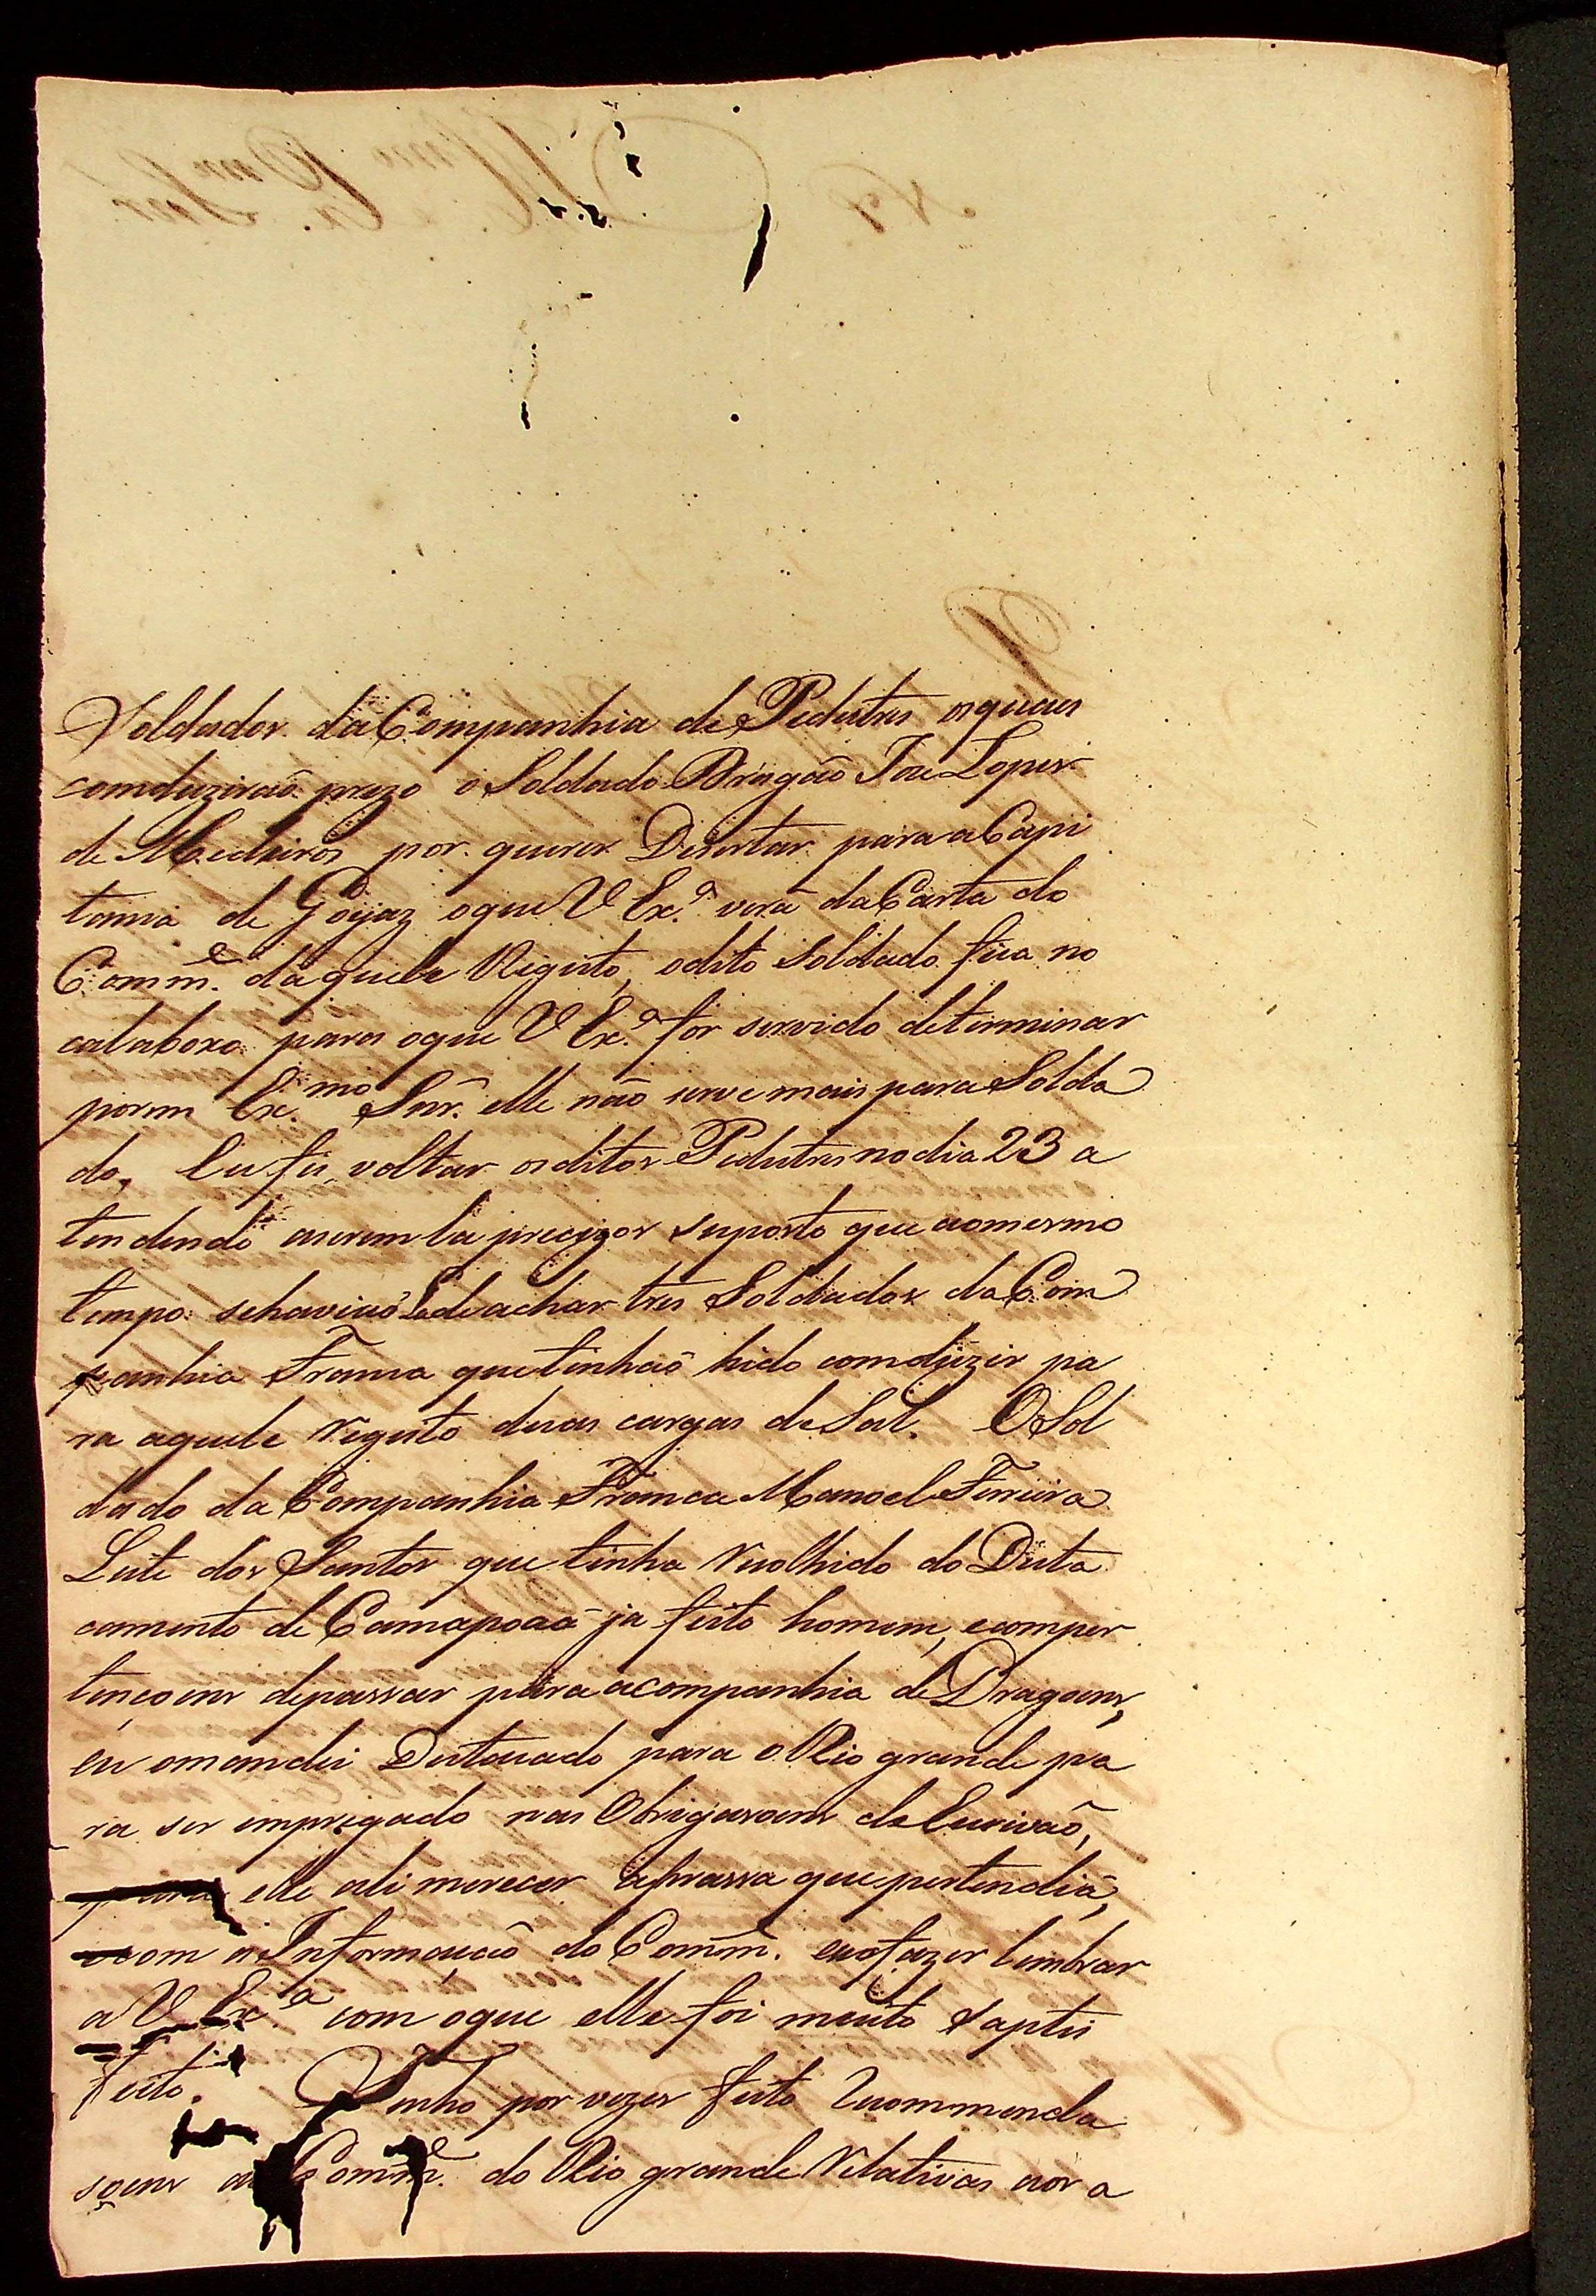 Soldados da Companhia de Pedestres os quaes
comduzirão prezo o Soldado Dragão Joze Lopes
de Medeiros por querer Dezertar para a Capi
tania de Goyaz o que V Ex.ª verá da Carta do
Comm.e daquele Registo, o dito soldado fica no
calaboxo para o que V Ex.ª for servido determinar
porem Ex.mo Snr. elle não serve mais para Solda
do. Eu fis voltar os ditos Pedestres no dia 23 a
tendendo aserem la precizos suposto que ao mesmo
tempo se havião la de achar tres Soldados da Com
panhia Franca que tinhão hido comduzir pa
ra aquele registo duas cargas de Sal. O Sol
dado da Companhia Franca Manoel Ferreira
Leite dos Santos que tinha recolhido do Desta
camento de Camapoaã ja feito homem, e com per
tençoens de passar para a companhia de Dragoens,
eu o mandei Destacado para o Rio grande pa
ra ser empregado nas Obrigasoens de Escrivão,
para elle ali merecer a prassa que pertendia,
e com a Informação do Comm. eu o fazer lembrar
a V Ex.ª com o que elle foi muito saptis
feito. Tenho por vezes feito recommenda
soens ao Comm.e do Rio grande relativas aos a